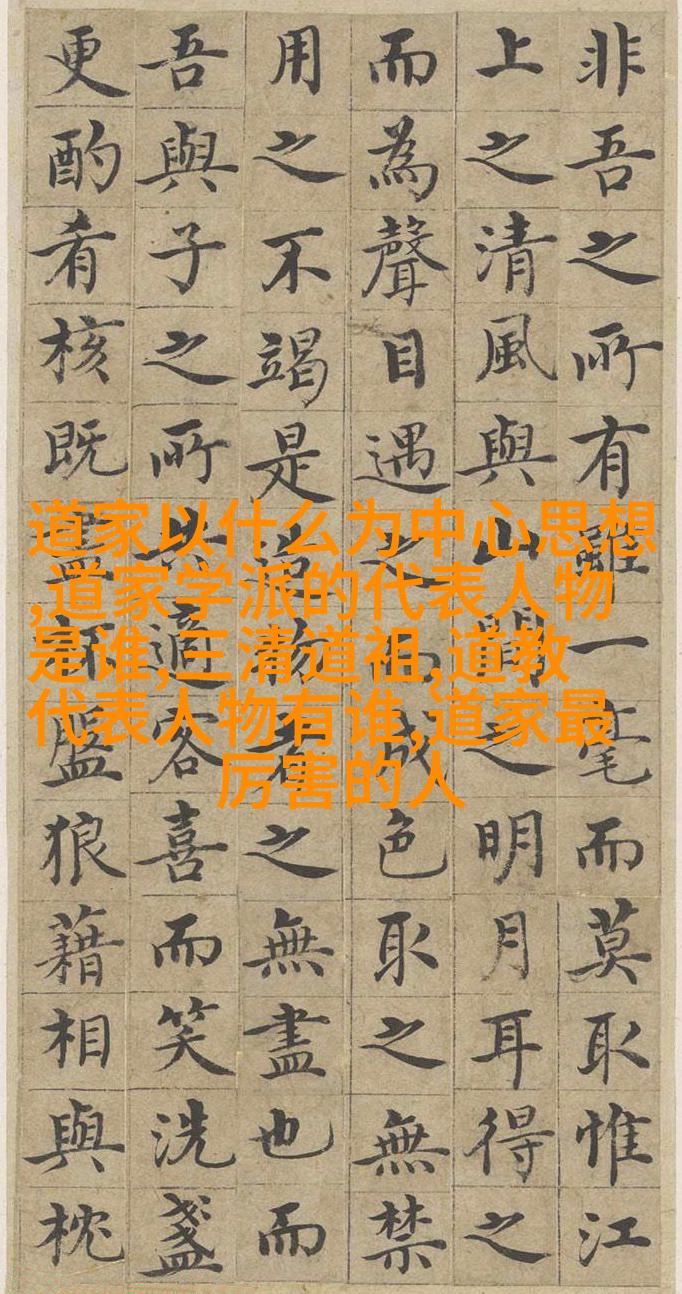 非吾之所有雖一毫而莫取惟江
上之清風與山間之明月耳得之
而為聲目遇之而成色取之無禁
用之不竭是造物者之無盡也而
吾與子之所共適客喜而笑洗盞
更酌肴核既盡杯盤狼藉相與枕
道家以什么为中心思想
,道家学派的代表人物
是谁,三清道祖,道教
代表人物有谁,道家最
厉害的人